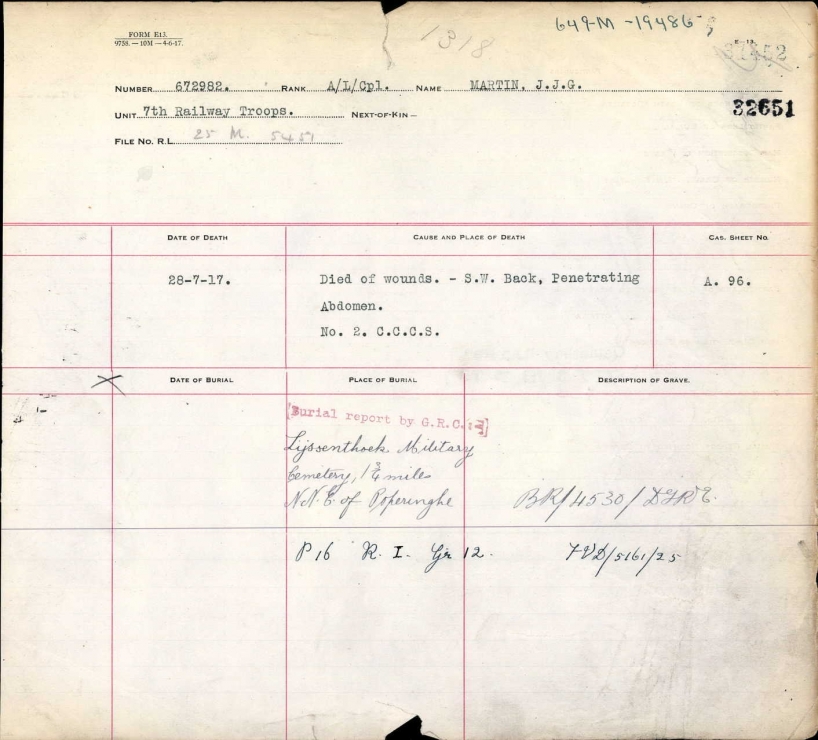 649-M-19486
FORM E13.
9758. — 10M — 4-6-17.
1318
E-13
NUMBER 672982. RANK A/L/Cpl. NAME MARTIN, J.J.G.
32651
UNIT 7th Railway Troops. NEXT-OF-KIN —
FILE NO. R.L. 25 M. 5451
DATE OF DEATH CAUSE AND PLACE OF DEATH CAS. SHEET NO.
28-7-17. Died of wounds. - S.W. Back, Penetrating A. 96.
Abdomen.
No. 2. C.C.C.S.
DATE OF BURIAL PLACE OF BURIAL DESCRIPTION OF GRAVE.
Burial report by G.R.C.
Lijssenthoek Military
Cemetery, 1¾ miles
N.N.E. of Poperinghe BR/4530/
P 16 R. I. Gr 12. /5161/25